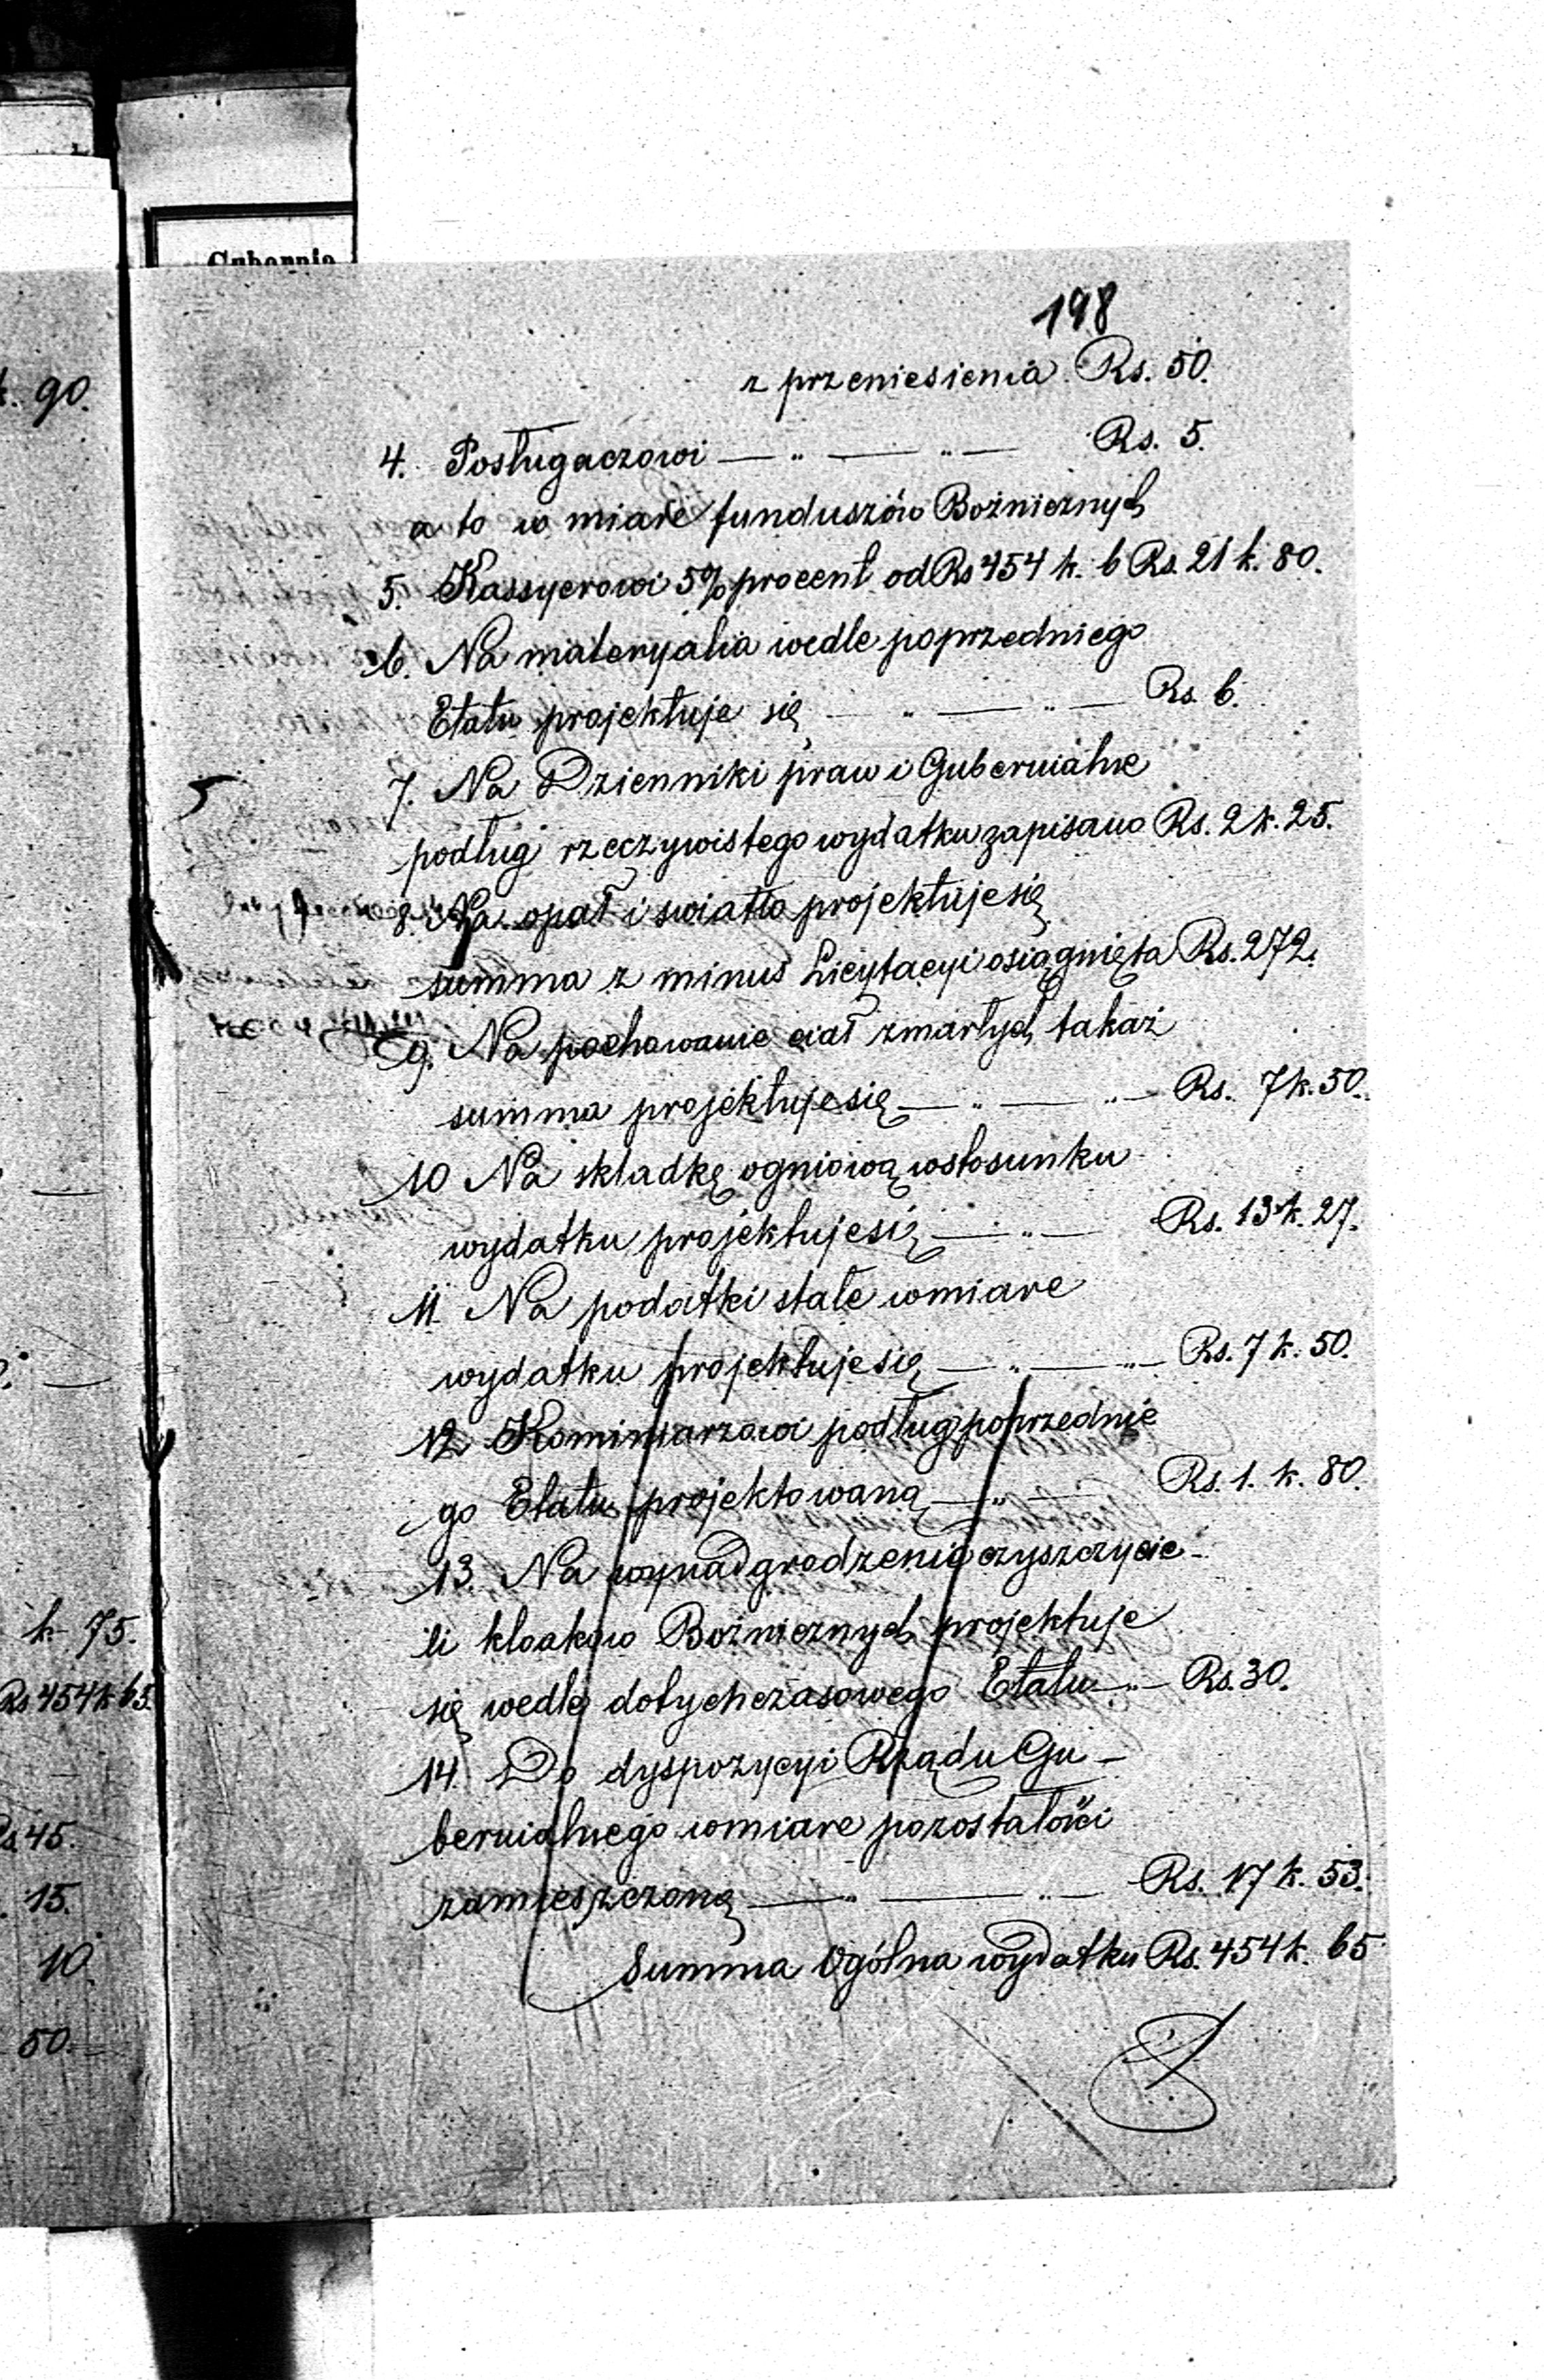 Gubernia
198
z przeniesienia Rs. 50.
4. Posługaczowi — „ — „ — Rs. 5.
a to w miare funduszów Bożnicznych
5. Kassyerowi 5% procent od Rs 454 k. 6 Rs. 21 k. 80.
6. Na materyalia wedle poprzedniego
Etatu projektuje się — „ — „ — Rs. 6.
7. Na Dzienniki praw i Gubernialne
podług rzeczywistego wydatku zapisano Rs. 2 k. 25.
8. Na opał i swiatło projektuje się
summa z minus Licytacyi osiągnięta Rs. 272.
9. Na pochowanie ciał zmarłych takaż
summa projektuje się — „ — „ — Rs. 7 k. 50.
10 Na składkę ogniową wstosunku
wydatku projektuje się — „ — Rs. 13 k. 27.
11. Na podatki stałe womiare
wydatku projektuje się — „ — „ — Rs. 7 k. 50.
12. Kominiarzowi podług poprzednie
go Etatu projektowaną — „ — Rs. 1. k. 80.
13. Na wynadgrodzenie czyszczycie-
li kloaków Bożnicznych projektuje
się wedle dotychczasowego Etatu — „ — Rs. 30.
14. Do dyspozycyi Rządu Gu-
bernialnego womiare pozostałości
zamieszczoną — „ — „ — Rs. 17 k. 53.
Summa Ogólna wydatku Rs. 454 k. 65
k. 90.
k. 75.
Rs 454 k 65.
Rs 45.
15.
10.
50.